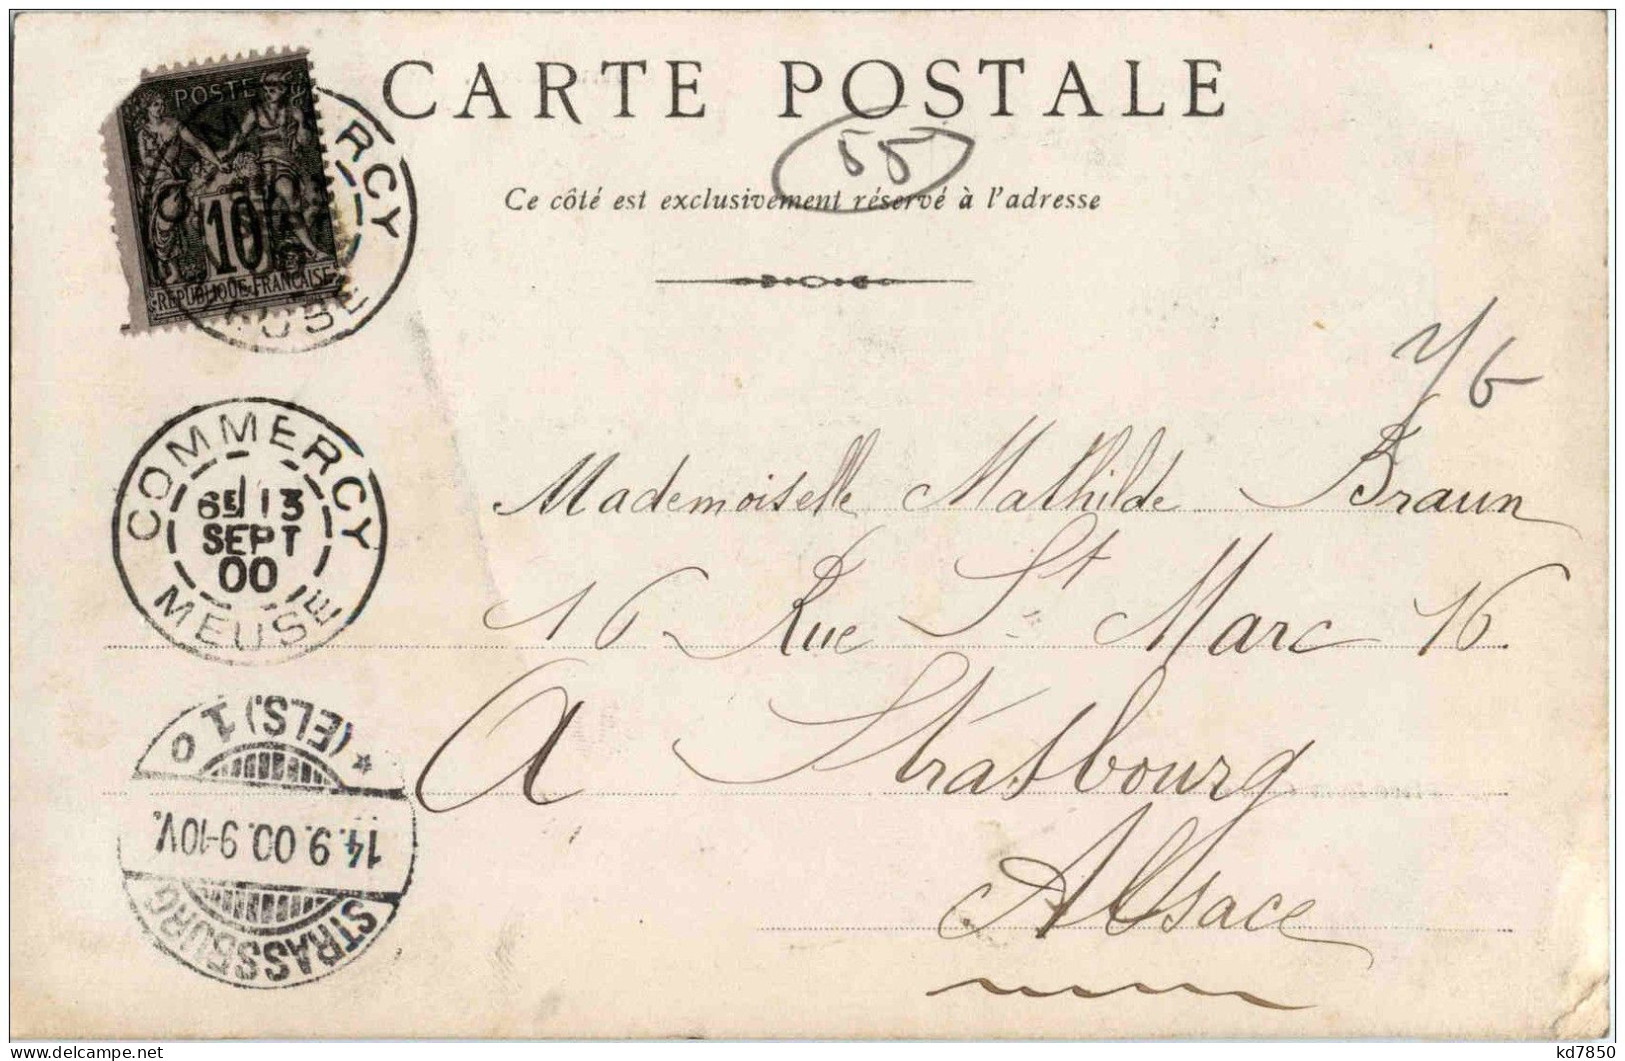 CARTE POSTALE
55
Ce côté est exclusivement réservé à l'adresse
POSTES
10
REPUBLIQUE FRANÇAISE
COMMERCY
MEUSE
COMMERCY
6E 13
SEPT
00
MEUSE
Mademoiselle Mathilde Braun
16 Rue St Marc 16.
A Strasbourg
Alsace
STRASSBURG
14.9.00.9-10V.
* (ELS.) 1 o
kd7850